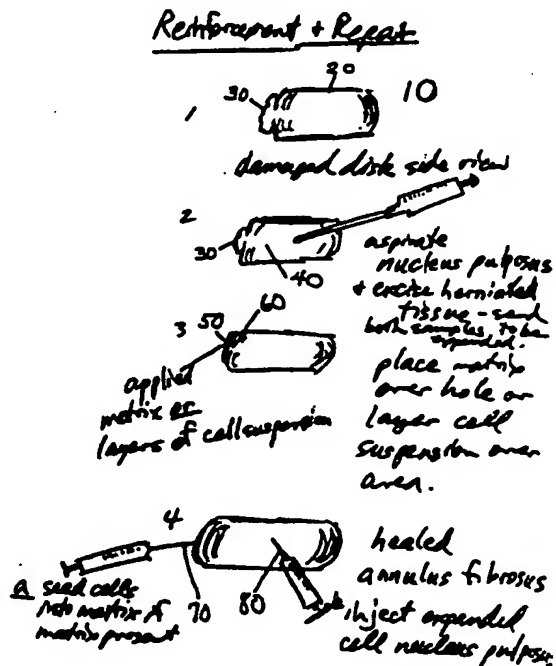 Reinforcement + Repair
20
30
10
1
damaged disk side view
2
30
40
aspirate
nucleus pulposus
+ excise herniated
tissue - send
both samples to be
expanded.
60
3 50
applied
matrix or
layers of cell suspension
place matrix
over hole or
layer cell
suspension over
area.
4
a seed cells
into matrix if
matrix present
70
80
healed
annulus fibrosus
inject expanded
cell nucleus pulposus